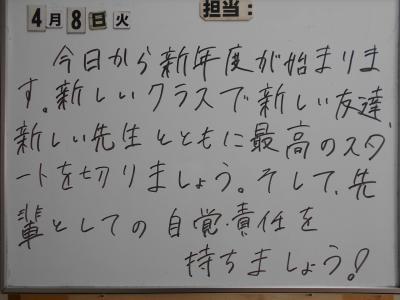 4月8日火 担当:
今日から新年度が始まりま
す。新しいクラスで新しい友達、
新しい先生とともに最高のスタ
ートを切りましょう。そして、先
輩としての自覚・責任を
持ちましょう!